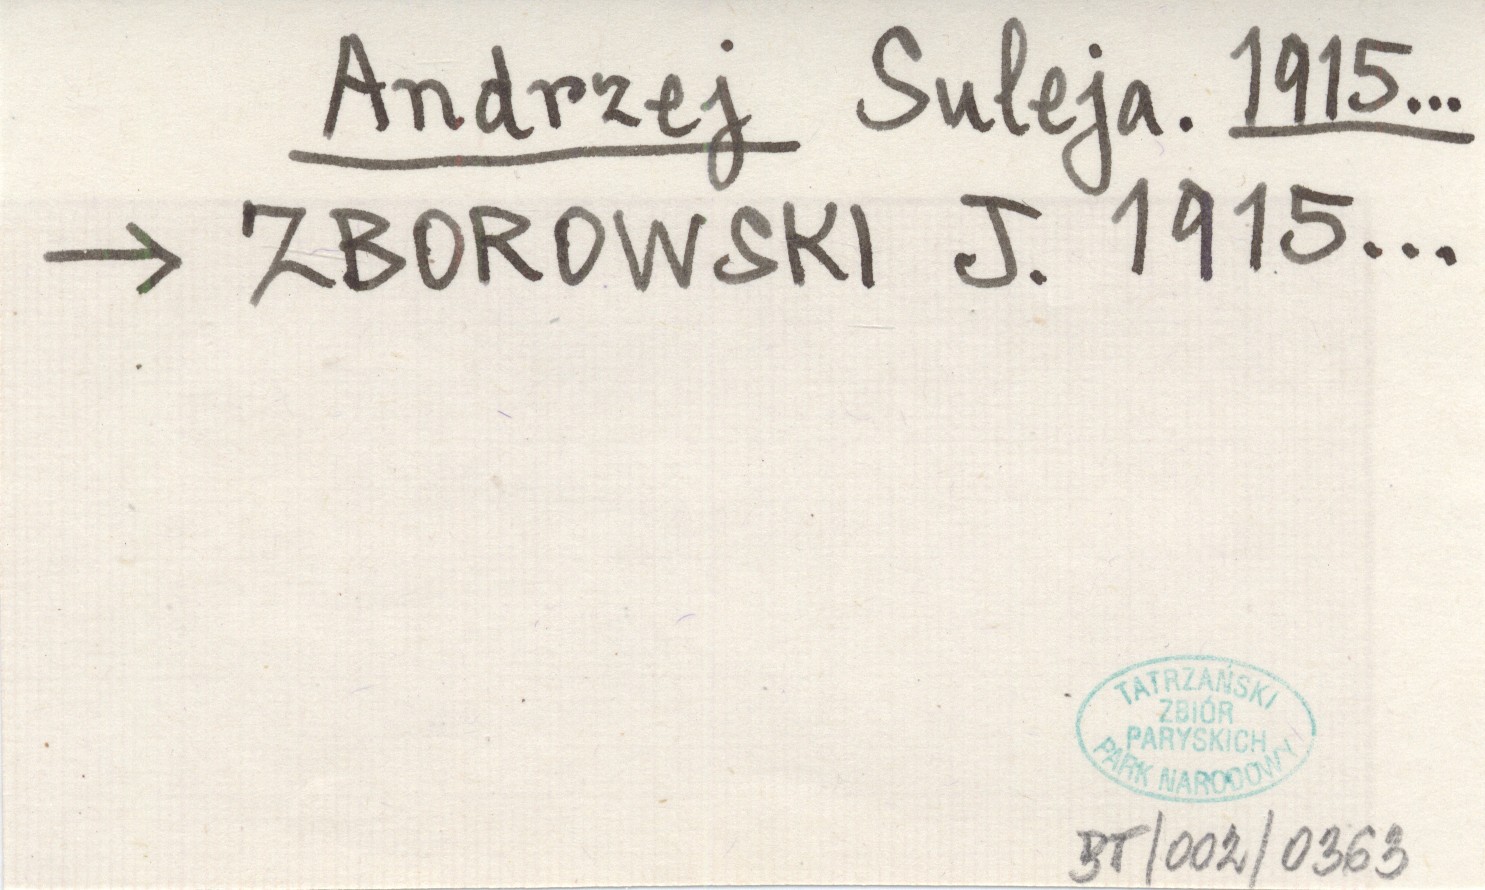 Andrzej Suleja. 1915...
→ ZBOROWSKI J. 1915...
TATRZAŃSKI
ZBIÓR
PARYSKICH
PARK NARODOWY
BT/002/0363